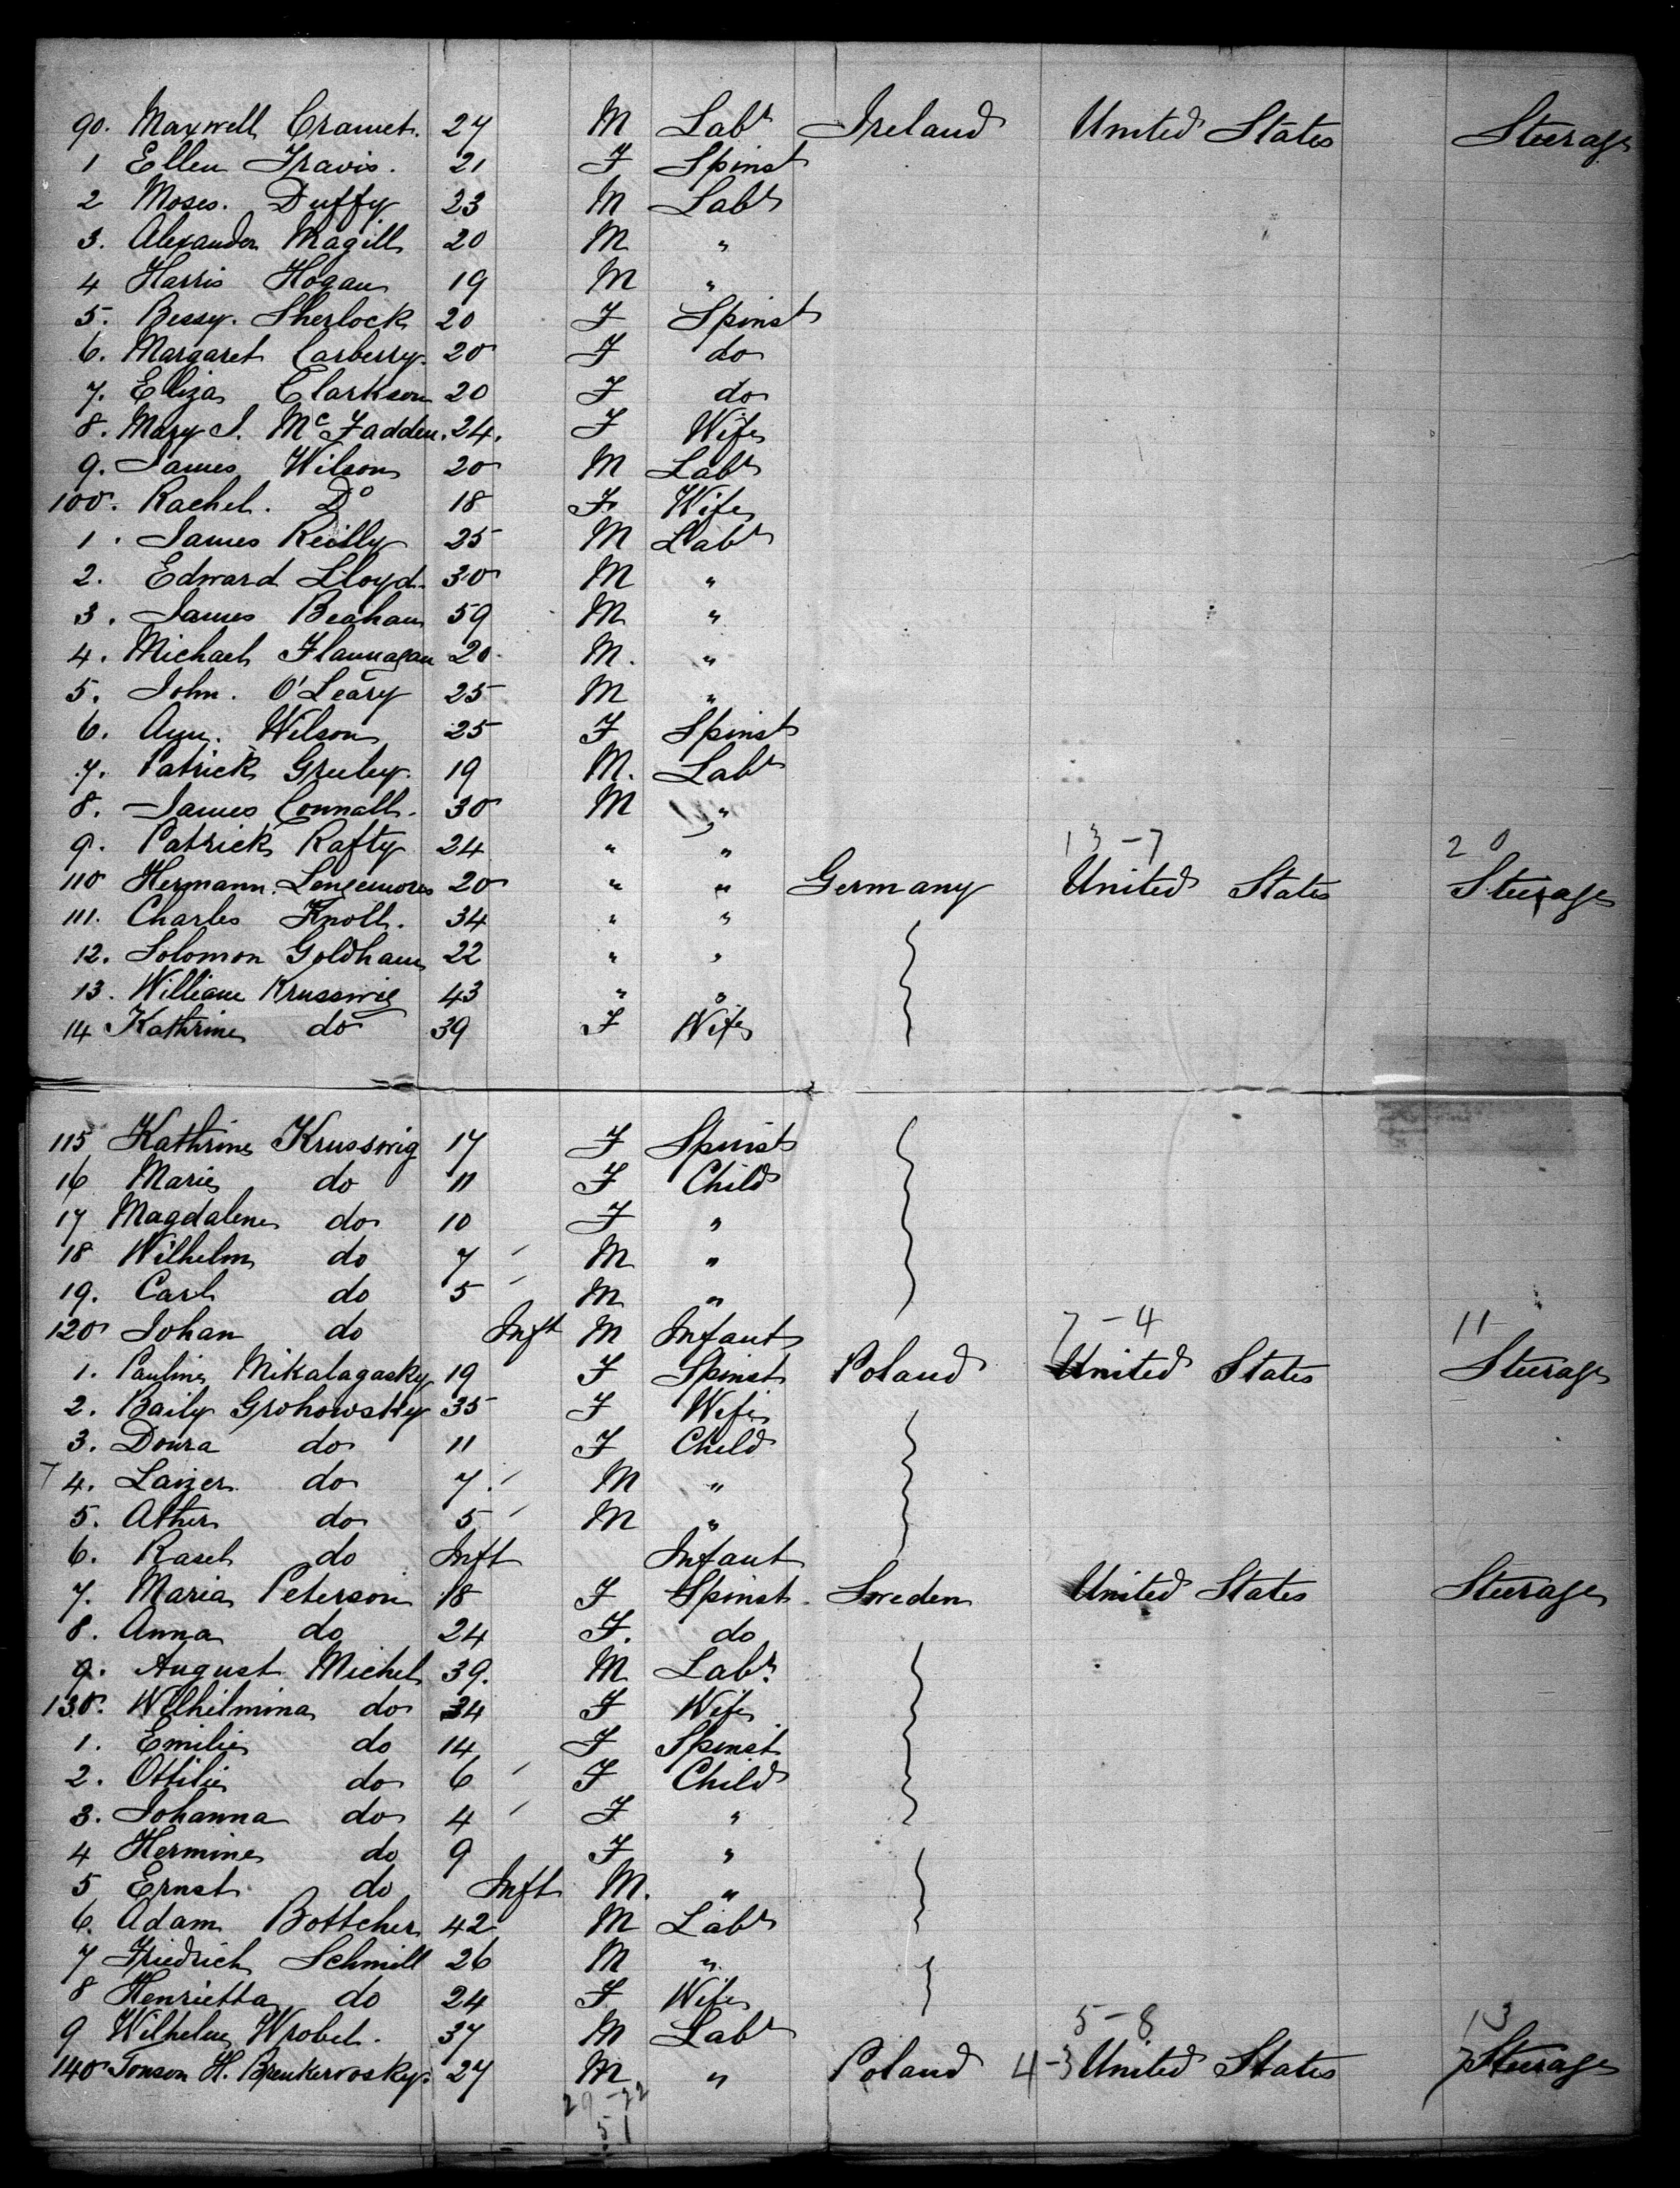 90. Maxwell Cramet. 27 M Labr Ireland United States Steerage
1 Ellen Travis. 21 F Spinst
2 Moses. Duffy 23 M Labr
3. Alexander Magill 20 M "
4 Harris Hogan 19 M "
5. Bessy. Sherlock 20 F Spinst
6. Margaret Carberry. 20 F do
7. Eliza Clarkson 20 F do
8. Mary J. McFadden. 24. F Wife
9. James Wilson 20 M Labr
100. Rachel. Do 18 F. Wife
1. James Reilly 25 M Labr
2. Edward Lloyd. 30 M "
3. James Beahan 59 M "
4. Michael Flannagan 20. M. "
5. John. O'Leary 25 M "
6. Ann. Wilson 25 F Spinst
7. Patrick Greeley. 19 M. Labr
8. James Connall. 30 M "
9. Patrick Rafty 24 " " 13-7 20
110 Hermann. 20 " " Germany United States Steerage
111. Charles Knoll. 34 " "
12. Solomon Goldham 22 " "
13. William Krusswig 43 " "
14 Kathrine do 39 F Wife
115 Kathrine Krusswig 17 F Spinst
16 Marie do 11 F Child
17 Magdalene do 10 F "
18 Wilhelm do 7 M "
19. Carl do 5 M "
120 Johan do Inft M Infant 7-4 11
1. Pauline Mikalagasky 19 F Spinst Poland United States Steerage
2. Baily Grohowsky 35 F Wife
3. Doura do 11 F Child
4. Laizer do 7 M "
5. Ather do 5 M "
6. Rasel do Inft Infant
7. Maria Peterson 18 F Spinst. Sweden United States Steerage
8. Anna do 24 F. do
9. August Michel 39. M Labr.
130. Wilhilmina do 34 F Wife
1. Emilie do 14 F Spinst
2. Ottilie do 6 F Child
3. Johanna do 4 F "
4 Hermine do 9 F "
5 Ernst do Inft M. "
6. Adam Bottcher 42 M Labr
7 Friedrich Schmill 26 M "
8 Henrietta do 24 F Wife
9 Wilhelm Wrobel. 37 M Labr 5-8 13
140 H. 27 M " Poland 4-3 United States 7 Steerage
29-22
51